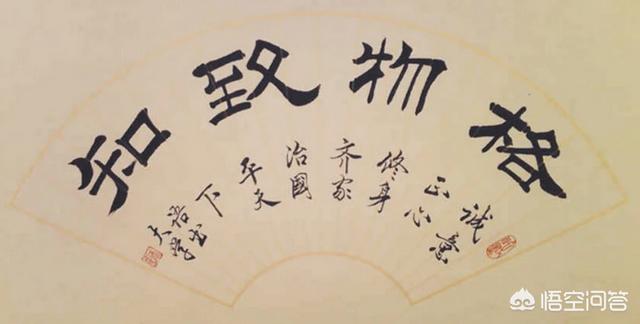 格物致知
诚意
正心
修身
齐家
治國
平天
下
大学
悟空问答